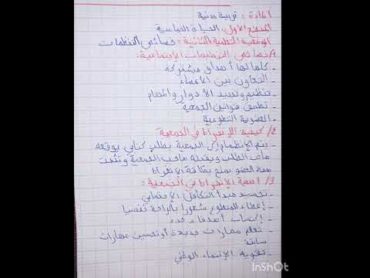 المادة: تربية مدنية
المقطع الأول: الحياة الجماعية
الوضعية الجزئية الثانية: خصائص التنظيمات
خصائص التنظيمات الاجتماعية:
- كلها لها أهداف مشتركة
- التعاون بين الأعضاء
- تنظيم وتحديد الأدوار والمهام
- تطبيق قوانين الجمعية
- العضوية التطوعية
2/ كيفية الانخراط في الجمعية
يتم الانضمام إلى الجمعية بطلب كتابي يوقعه
صاحب الطلب ويقبله صاحب الجمعية وتثبت
صفة العضو بمنح بطاقة الانخراط
3/ أهمية الانخراط في الجمعية:
- تجسيد مبدأ التكافل الاجتماعي
- إعطاء المتطوع شعورا بالراحة نفسيا
- إكتساب أصدقاء جدد
- تعلم مهارات جديدة أو تحسين مهارات
سابقة
- تقوية الإنتماء الوطني
InShOt